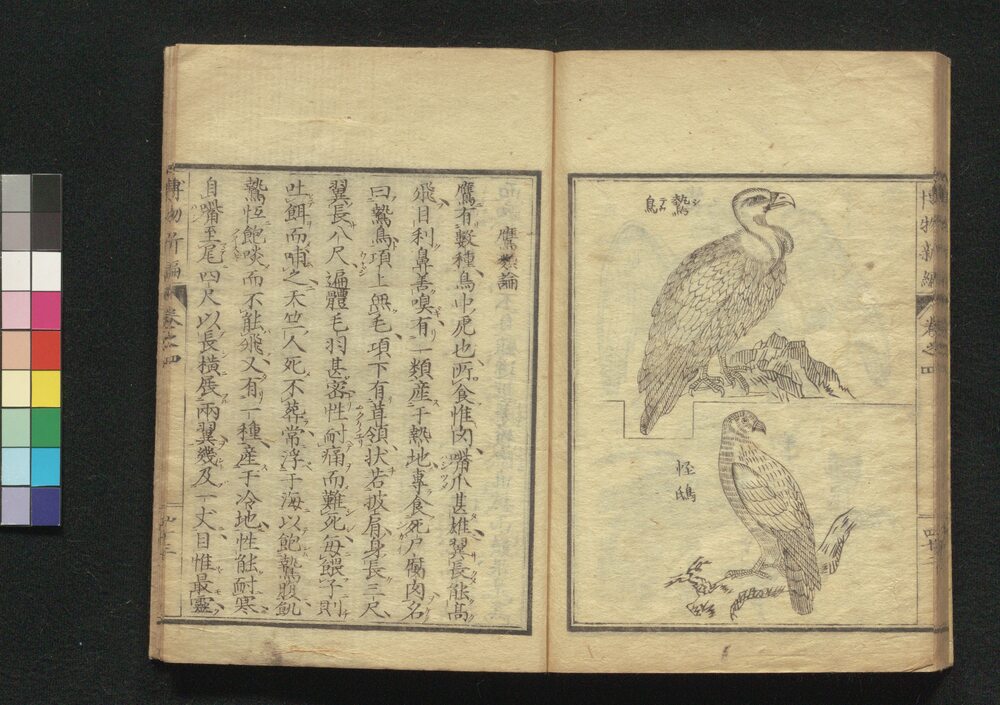 鷙鳥
怪鴟
博物新編 卷之四
鷹類論
鷹有數種鳥中虎也所食惟肉嘴爪甚雄翼長能高
飛目利鼻善嗅有一類産于熱地專食死尸腐肉名
曰鷙鳥項上無毛項下有茸領狀若披肩身長三尺
翼長八尺遍體毛羽甚密性耐痛而難死每餵子則
吐餌而哺之天竺人死不葬常浮于海以飽鷙腹飢
鷙恒飽啖而不能飛又有一種産于冷地性能耐寒
自嘴至尾四尺以長橫展兩翼幾及一丈目惟最靈
博物新編 卷之四